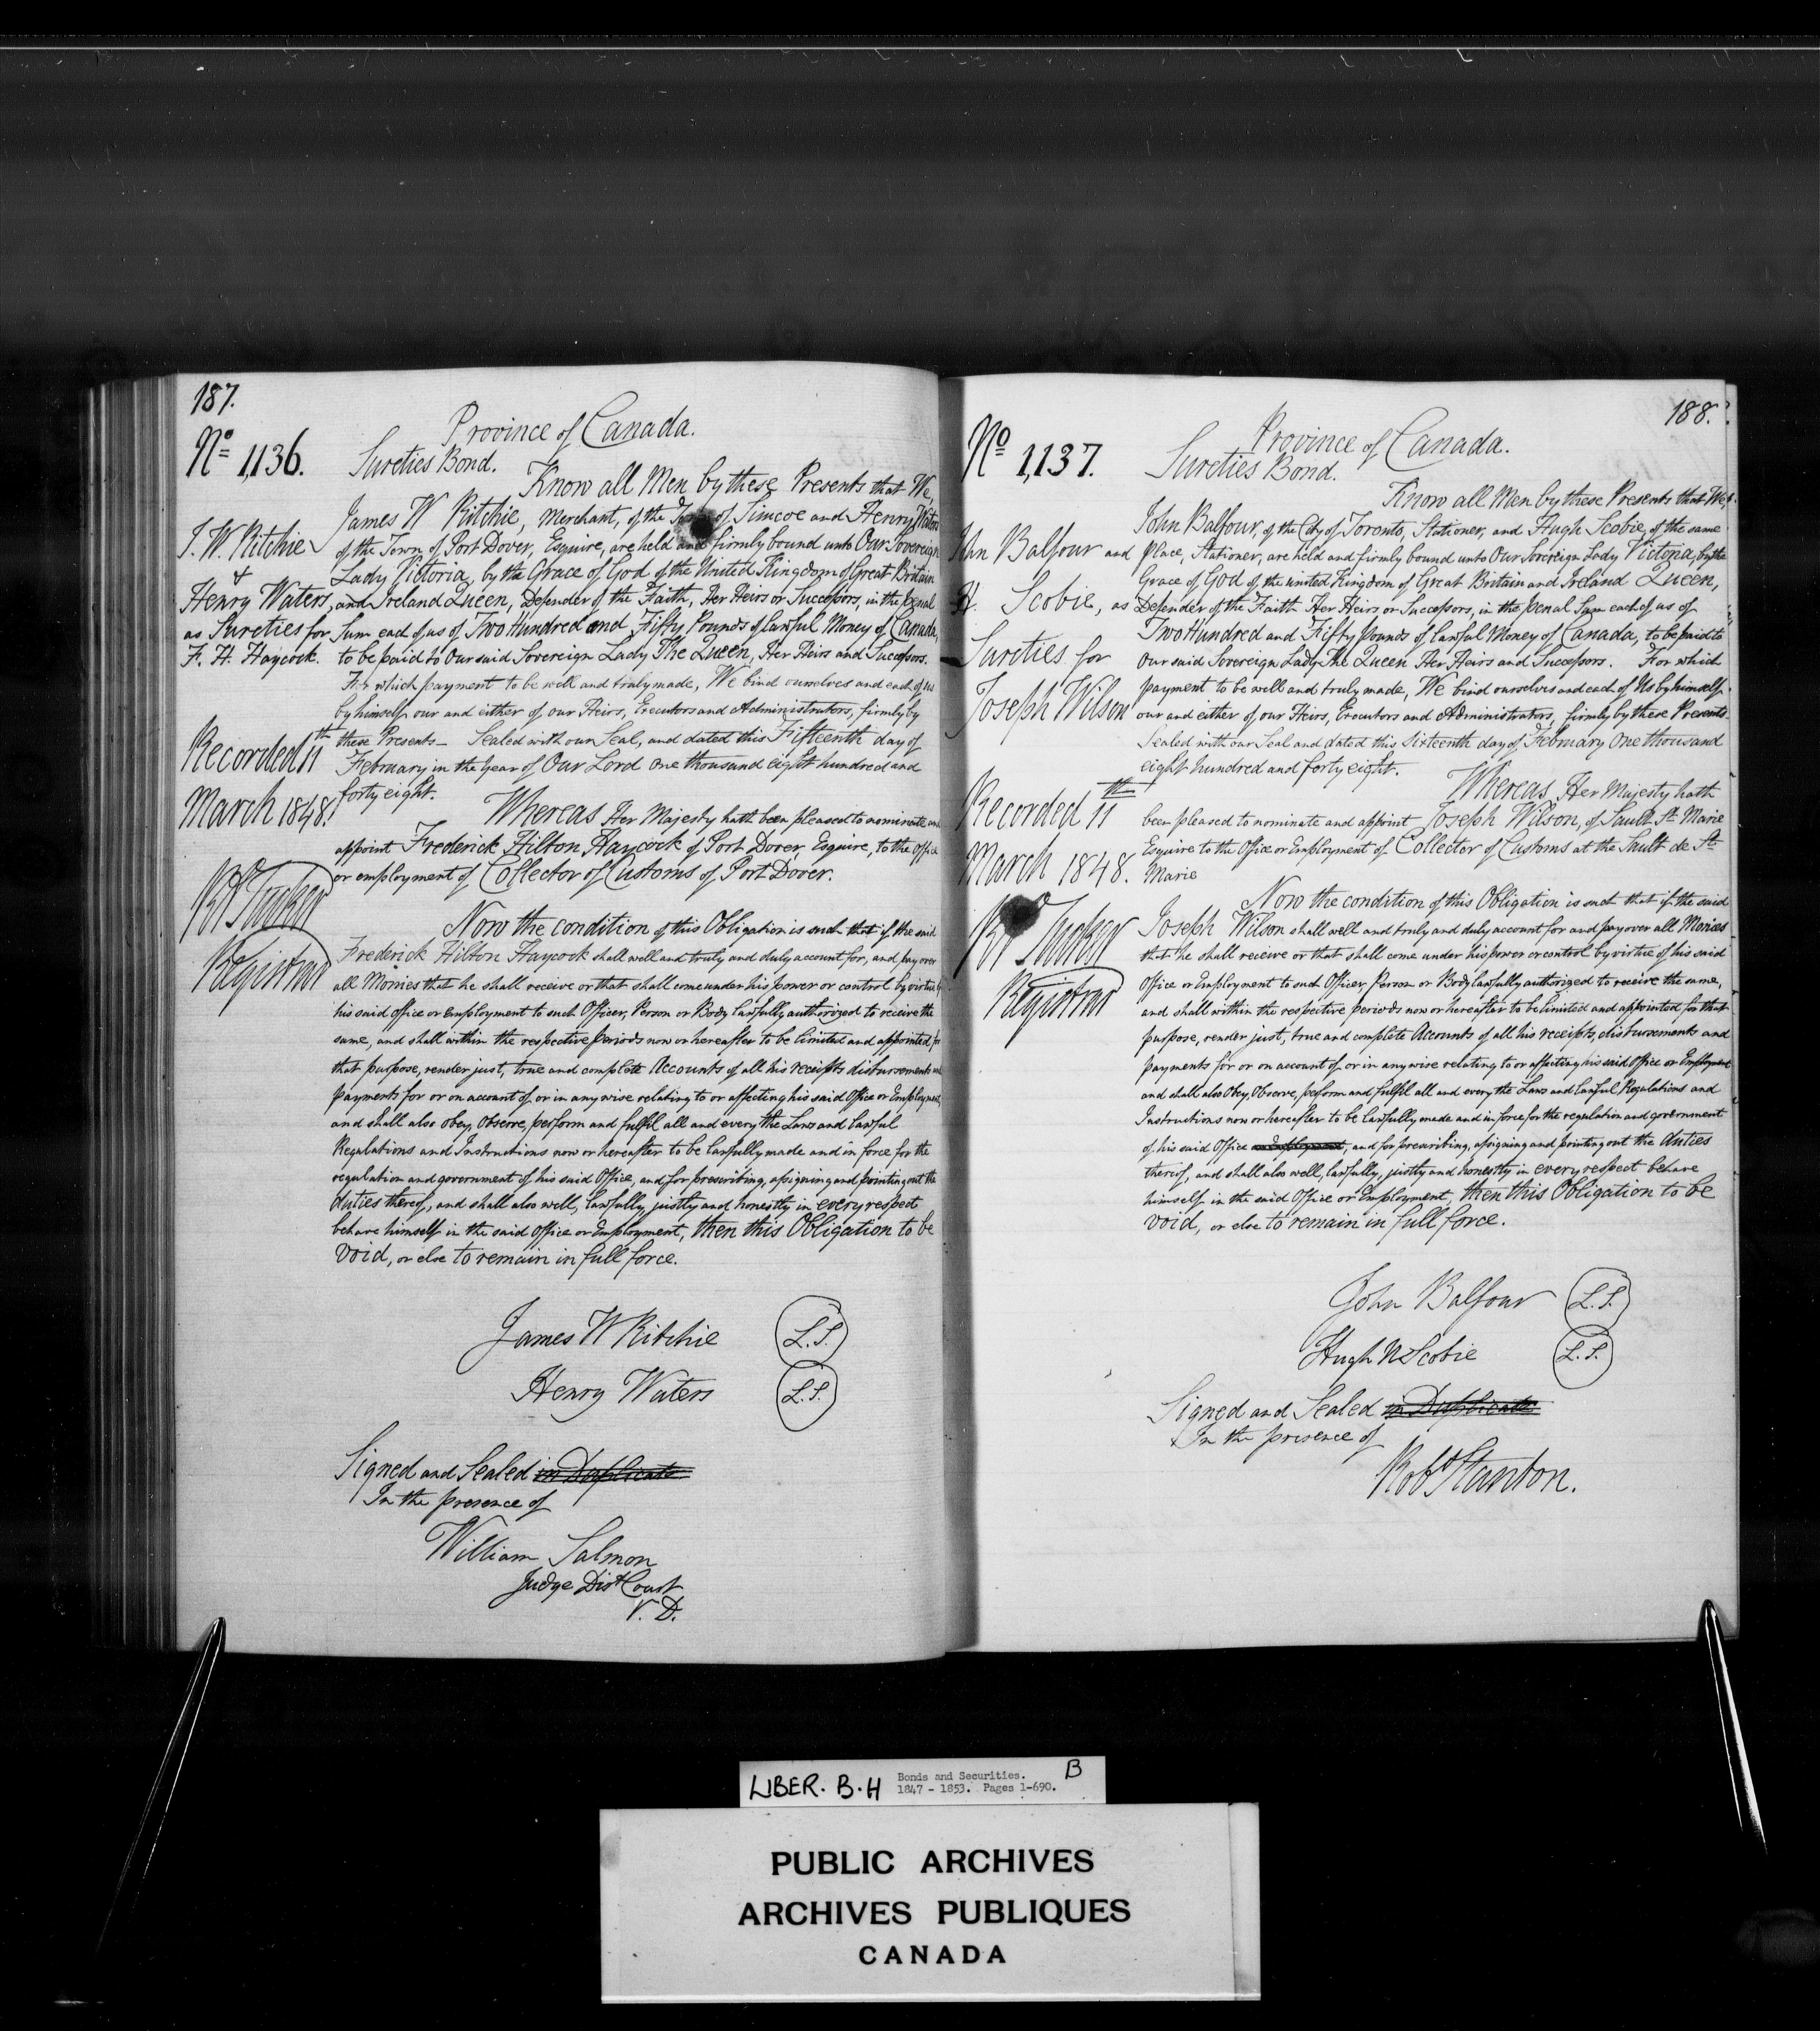 187.
Province of Canada.
No 1,136.
Sureties Bond.
Know all Men by these Presents that We,
James W Ritchie, Merchant, of the of Simcoe and Henry Waters
J. W. Ritchie
of the Town of Port Dover, Esquire, are held and firmly bound unto Our Sovereign
&
Lady Victoria, by the Grace of God of the United Kingdom of Great Britain
Henry Waters,
and Ireland Queen, Defender of the Faith, Her Heirs or Successors, in the penal
as Sureties for
Sum each of us of Two Hundred and Fifty Pounds of lawful Money of Canada,
F. H. Haycock.
to be paid to Our said Sovereign Lady The Queen, Her Heirs and Successors.
For which payment to be well and truly made, We bind ourselves and each of us
by himself our and either of our Heirs, Executors and Administrators, firmly by
Recorded 11th
these Presents – Sealed with our Seal, and dated this Fifteenth day of
February in the Year of Our Lord One thousand eight hundred and
March 1848.
forty eight.
Whereas Her Majesty hath been pleased to nominate and
appoint Frederick Hilton Haycock of Port Dover Esquire, to the Office
or employment of Collector of Customs of Port Dover.
Tucker
Registrar
Now the condition of this Obligation is such that if the said
Frederick Hilton Haycock shall well and truly and duly account for, and pay over
all Monies that he shall receive or that shall come under his power or control by virtue of
his said office or Employment to such Officer, Person or Body lawfully authorized to receive the
same, and shall within the respective periods now or hereafter to be limited and appointed for
that purpose, render just, true and complete Accounts of all his receipts disbursements and
payments for or on account of or in any wise relating to or affecting his said Office or Employment,
and shall also obey, observe, perform and fulfil all and every the Laws and lawful
Regulations and Instructions now or hereafter to be lawfully made and in force for the
regulation and government of his said Office, and for prescribing, assigning and pointing out the
duties thereof, and shall also well, lawfully, justly and honestly in every respect
behave himself in the said Office or Employment, then this Obligation to be
void, or else to remain in full force.
James W Ritchie L.S.
Henry Waters L.S.
Signed and Sealed in Duplicate
In the presence of
William Salmon
Judge Dist Court
188.
Province of Canada.
No 1,137.
Sureties Bond.
Know all Men by these Presents that We,
John Balfour, of the City of Toronto, Stationer, and Hugh Scobie, of the same
John Balfour and
place, Stationer, are held and firmly bound unto Our Sovereign Lady Victoria, by the
Grace of God of the united Kingdom of Great Britain and Ireland Queen,
H. Scobie, as
Defender of the Faith Her Heirs or Successors, in the penal Sum each of us of
Two Hundred and Fifty pounds of lawful Money of Canada, to be paid to
Sureties for
our said Sovereign Lady The Queen Her Heirs and Successors. For which
payment to be well and truly made, We bind ourselves and each of Us by himself
Joseph Wilson
our and either of our Heirs, Executors and Administrators, firmly by these Presents
Sealed with our Seal and dated this Sixteenth day of February One thousand
eight hundred and forty eight.
Whereas Her Majesty hath
Recorded 11th
been pleased to nominate and appoint Joseph Wilson, of Sault St Marie
March 1848.
Esquire to the Office or Employment of Collector of Customs at the Sault de St
Marie
Tucker
Registrar
Now the condition of this Obligation is such that if the said
Joseph Wilson shall well and truly and duly account for and pay over all Monies
that he shall receive or that shall come under his power or control by virtue of his said
Office or Employment to such Officer, Person or Body lawfully authorized to receive the same,
and shall within the respective periods now or hereafter to be limited and appointed for that
purpose, render just, true and complete Accounts of all his receipts, disbursements and
payments for or on account of or in any wise relating to or affecting his said Office or Employment
and shall also Obey, Observe, perform and fulfil all and every the Laws and Lawful Regulations and
Instructions now or hereafter to be lawfully made and in force for the regulation and government
of his said Office or Employment, and for prescribing, assigning and pointing out the duties
thereof, and shall also well, lawfully, justly and honestly in every respect behave
himself in the said Office or Employment, then this Obligation to be
void, or else to remain in full force.
John Balfour L.S.
Hugh Scobie L.S.
Signed and Sealed in Duplicate
In the presence of
Robt Stanton.
LIBER. B.H Bonds and Securities. B
1847 - 1853. Pages 1-690.
PUBLIC ARCHIVES
ARCHIVES PUBLIQUES
CANADA